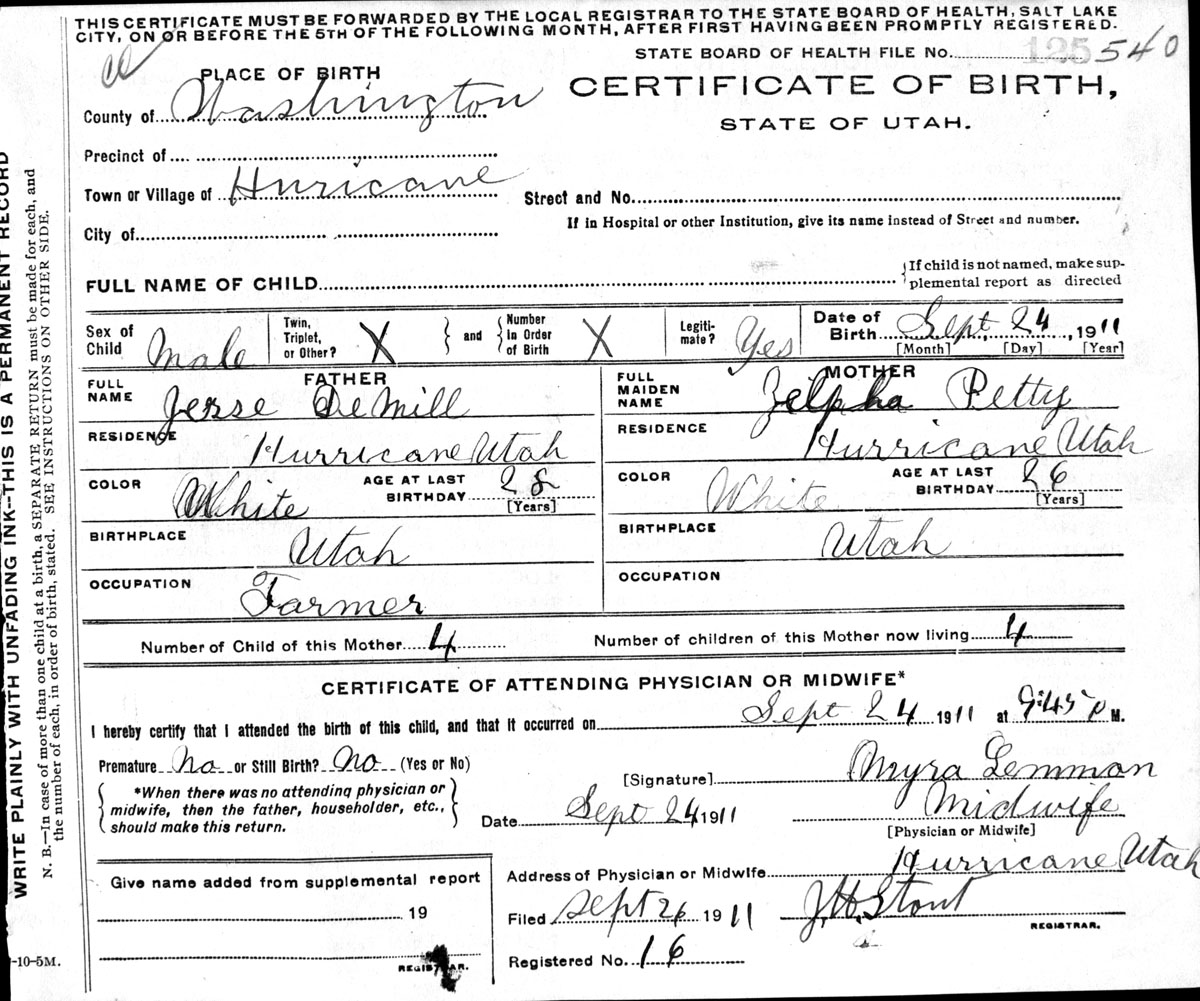 THIS CERTIFICATE MUST BE FORWARDED BY THE LOCAL REGISTRAR TO THE STATE BOARD OF HEALTH, SALT LAKE
CITY, ON OR BEFORE THE 5TH OF THE FOLLOWING MONTH, AFTER FIRST HAVING BEEN PROMPTLY REGISTERED.
STATE BOARD OF HEALTH FILE No. 125 540
PLACE OF BIRTH
CERTIFICATE OF BIRTH,
STATE OF UTAH.
County of Washington
Precinct of
Town or Village of Huricane
Street and No.
If in Hospital or other Institution, give its name instead of Street and number.
City of
FULL NAME OF CHILD
If child is not named, make sup-
plemental report as directed
Sex of Child Male
Twin, Triplet, or Other? X
and
Number in Order of Birth X
Legiti-mate? Yes
Date of Birth Sept 24, 1911
[Month] [Day] [Year]
FATHER
FULL NAME Jesse DeMill
RESIDENCE Hurricane Utah
COLOR White
AGE AT LAST BIRTHDAY 28
[Years]
BIRTHPLACE Utah
OCCUPATION Farmer
MOTHER
FULL MAIDEN NAME Zelpha Petty
RESIDENCE Hurricane Utah
COLOR White
AGE AT LAST BIRTHDAY 26
[Years]
BIRTHPLACE Utah
OCCUPATION
Number of Child of this Mother 4
Number of children of this Mother now living 4
CERTIFICATE OF ATTENDING PHYSICIAN OR MIDWIFE*
I hereby certify that I attended the birth of this child, and that it occurred on Sept 24 1911 at 9:45 P M.
Premature No or Still Birth? No (Yes or No)
*When there was no attending physician or
midwife, then the father, householder, etc.,
should make this return.
[Signature] Myra Lemmon
Date Sept 24 1911
Midwife
[Physician or Midwife]
Address of Physician or Midwife Hurricane Utah
Filed Sept 26 1911
J.H. Stout
REGISTRAR.
Registered No. 16
Give name added from supplemental report
19
REGISTRAR.
WRITE PLAINLY WITH UNFADING INK--THIS IS A PERMANENT RECORD
N. B.—In case of more than one child at a birth, a SEPARATE RETURN must be made for each, and
the number of each, in order of birth, stated. SEE INSTRUCTIONS ON OTHER SIDE.
-10-5M.